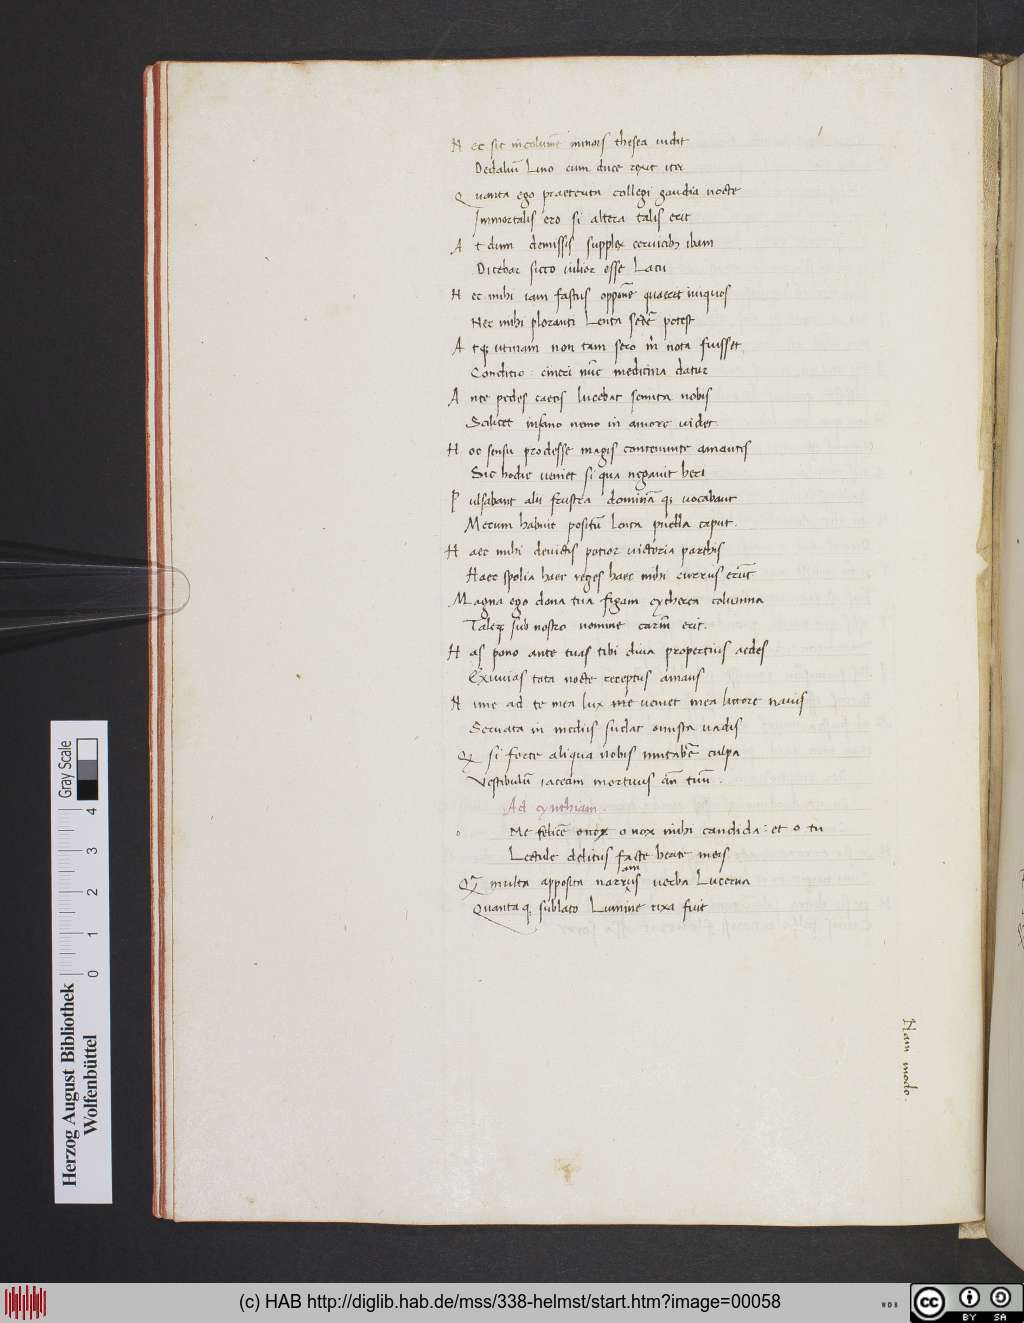 N ec sic incolumē minois thesea uidit
Dedaliū Lino cum duce rexit iter
Q uanta ego praeterita collegi gaudia nocte
Immortalis ero si altera talis erit
A t dum demissis supplex ceruicibꝫ ibam
Dicebar sicco uilior esse Lacu
N ec mihi iam fastus opponē quaerit iniquos
Nec mihi ploranti Lenta sedē potest
A tqꝫ utinam non tam sero m̄ nota fuisset
Conditio : cineri nūc medicina datur
A nte pedes caecis lucebat semita nobis
Scilicet insano nemo in amore uidet
H oc sensu prodesse magis contemnite amantis
Sic hodie ueniet si qua negauit heri
P ulsabant alii frustra dominā qꝫ uocabant
Mecum habuit positū lenta puella caput .
H aec mihi deuictis potior uictoria parthis
Haec spolia haec reges haec mihi currus erūt
M agna ego dona tua figam cytherea columna
Taleqꝫ sub nostro nomine carm̄ erit .
H as pono ante tuas tibi diua propertius aedes
Exiuuias tota nocte receptus amans
N unc ad te mea lux me ueniet mea littore nauis
Seruata in mediis sudat onusta uadis
Qꝫ si forte aliqua nobis mutabē culpa
Vestibulū iaceam mortuus an̄ tuū :
Ad cynthiam .
o Me felicē o nox o nox mihi candida : et o tu
Lectule delitus facte beate meis
Qꝫ multa apposita narramus uerba Lucerna
Quantaqꝫ sublato Lumine rixa fuit
Nam modo .
Gray Scale
0 1 2 3 4
Herzog August Bibliothek
Wolfenbüttel
(c) HAB http://diglib.hab.de/mss/338-helmst/start.htm?image=00058
WDB
cc
BY SA